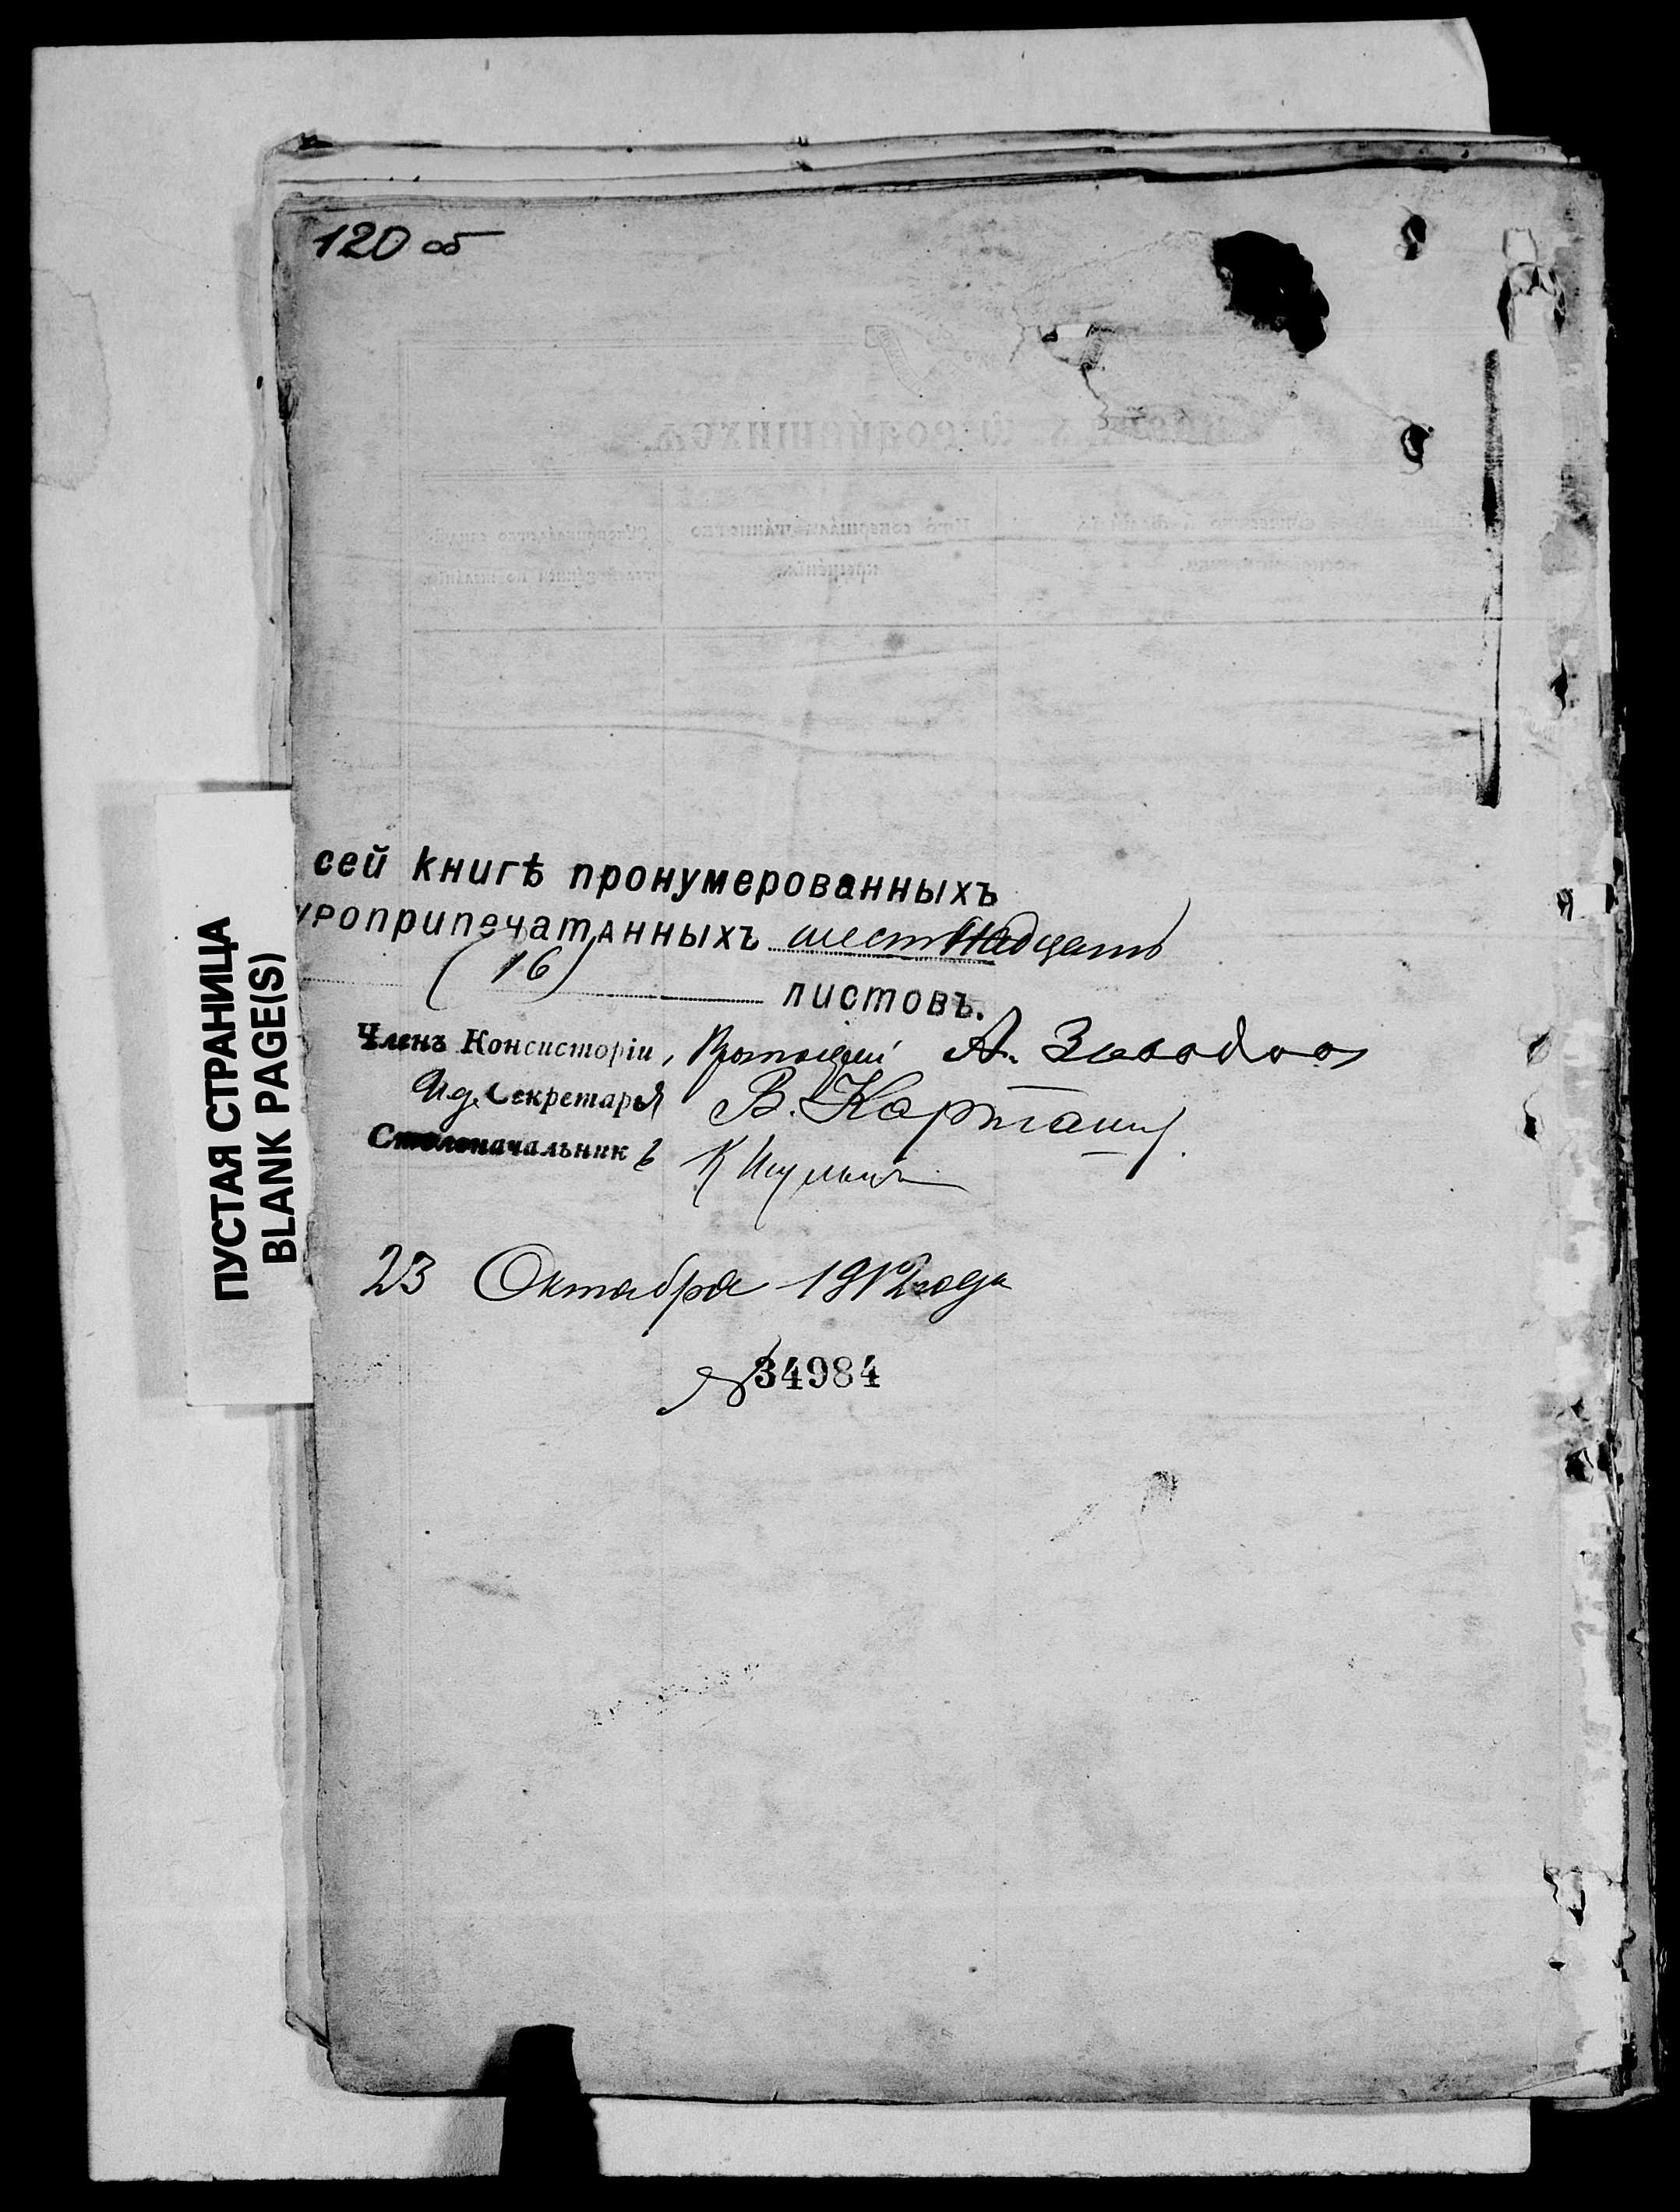 120 об
сей книгѣ пронумерованныхъ
уроприпечатанныхъ шестнадцать
(16) листовъ.
Членъ Консисторіи, Протоіерей А.
И д. Секретаря В.
Столоначальникъ К
23 Октября 1912 года
№ 34984
ПУСТАЯ СТРАНИЦА
BLANK PAGE(S)